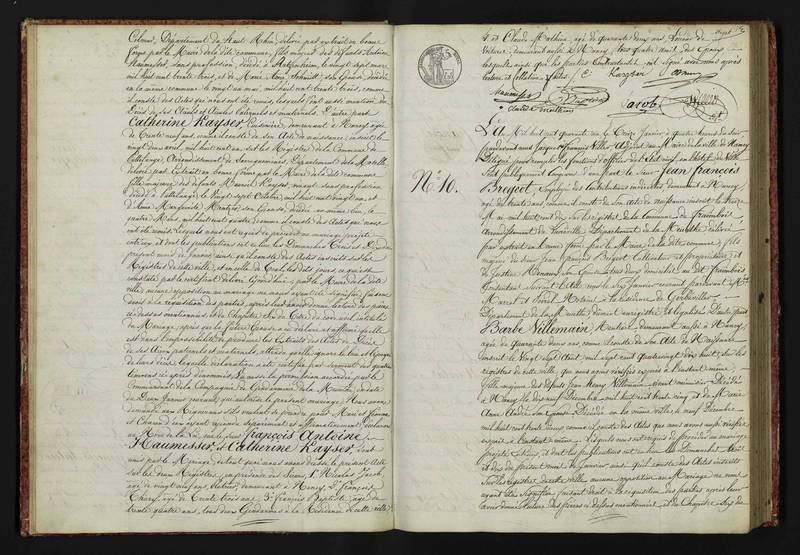 Colmar, Département du Haut Rhin, délivré par extrait en bonne
forme par le Maire de la dite commune, fils majeur des défunts Antoine
Haumesser, sans profession, décédé à
mil huit cent trente trois, et de Marie Anne Schmidt son épouse, décédée
en la même commune le vingt un mai, mil huit cent trente trois, comme
il conste des Actes qui nous ont été remis, lesquels font aussi mention du
Décès de ses Aïeuls et Aïeules paternels et maternels. D'autre part
Catherine Kayser, Cuisinière, demeurant à Nancy, âgée
de trente neuf ans, comme il conste de son Acte de naissance inscrit le
vingt deux avril, mil huit cent un, sur les Registres de la Commune de
Arrondissement de Sarreguemines, Département de la Moselle
délivré par Extrait en bonne forme par le Maire de la dite commune
fille majeure des défunts Marcel Kayser, vivant sans profession
décédé à le vingt sept Octobre, mil huit cent vingt un, et
d'Anne Marguerite son épouse, décédée au même lieu, le
quatre Mars, mil huit cent quatre, comme il conste des Actes qui nous
ont été remis, Lesquels nous ont requis de procéder au mariage projeté
entre eux, et dont les publications ont eu lieu les Dimanches Trois et Dix du
présent mois de Janvier ainsi qu'il conste des Actes inscrits sur les
Registres de cette ville, et en celle de les dits jours, ce qui est
constaté par le certificat délivré aujourd'hui, par le Maire de la dite
ville aucune opposition au mariage ne nous ayant été signifiée, faisant
droit à la réquisition des parties, après leur avoir donné lecture des pièces
ci dessus mentionnées et du Chapitre Six du Titre du code civil, intitulé
du Mariage, après que la future Épouse a eu déclaré et affirmé qu'elle
est dans l'impossibilité de produire les Extraits des Actes de Décès
de ses Aïeux paternels et maternels, attendu qu'elle ignore le lieu et l'époque
de leurs décès, laquelle déclaration a été certifiée par serment des quatre
témoins ci après dénommés, Ensuite la permission accordée par le
Commandant de la Compagnie de Gendarmerie de la Meurthe, en date
du Deux Janvier courant, qui autorise le présent mariage, Nous avons
demandé aux Requérans s'ils veulent se prendre pour Mari et femme
et Chacun d'eux ayant répondu séparément et affirmativement, déclarons
au Nom de la Loi, que le Sieur François Antoine
Haumesser, et Catherine Kayser, sont
unis par le Mariage, de tout quoi nous avons dressé le présent Acte
sur les deux Registres, en présence des Sieurs, 1° Nicolas Jacob,
âgé de vingt neuf ans, demeurant à Nancy, 2° François
âgé de trente trois ans, 3° François Baptiste, âgé de
trente quatre ans, tous deux Gendarmes à la Résidence de cette ville,
4° et Claude Mathieu, âgé de quarante deux ans,
voitures, demeurant aussi à Nancy, tous quatre amis des époux,
lesquels ainsi que les parties Contractantes ont signé avec nous après
lecture et Collation faites. C Kaysser
Haumesser
Claude Mathieu
Jacob
N° 10.
L'An Mil huit cent quarante un, le Treize Janvier à quatre heures du soir,
pardevant nous Jacques François Adjoint au Maire de la ville de Nancy
Délégué pour remplir les fonctions d'officier de l'État civil, en l'hôtel de Ville
Sont publiquement comparus d'une part le Sieur Jean François
Bregeot, Employé des Contributions indirectes demeurant à Nancy,
âgé de trente ans, comme il conste de son acte de naissance inscrit le treize
Mai mil huit cent dix, sur les registres de la Commune de Fraimbois,
Arrondissement de Lunéville Département de la Meurthe délivré
par extrait en bonne forme par le Maire de la dite Commune, fils
majeur du sieur Jean François Bregeot Cultivateur et propriétaire et
de Justine son Epouse tous deux domiciliés au dit Fraimbois,
Consentans suivant Acte reçu le six Janvier courant pardevant M.e
Marcel et Notaires à la résidence de Gerbéviller
Département de la Meurthe, dûment enregistré et légalisé. D'autre part
Barbe Villemain, Rentière, demeurant aussi à Nancy,
âgée de quarante deux ans, comme il conste de son Acte de Naissance
inscrit le Vingt sept Août mil sept cent quatre vingt dix huit, sur les
registres de cette ville, que nous avons vérifiés exposés à l'instant même,
fille majeure des défunts Jean Henry Villemain, vivant menuisier Décédé
à Nancy, le dix neuf Décembre, mil huit cent trente cinq et de Marie
Anne André son Epouse Décédée en la même ville, le neuf Décembre
mil huit cent trente deux, comme il conste des Actes que nous avons aussi vérifiés
exposés à l'instant même. Lesquels nous ont requis de procéder au mariage
projeté entre eux, et dont les publications ont eu lieu les Dimanches trois
et dix du présent mois de Janvier ainsi qu'il conste des Actes inscrits
sur les registres de cette ville, aucune opposition au Mariage ne nous
ayant été signifiée faisant droit à la réquisition des parties, après leur
avoir donné lecture des pièces ci dessus mentionnées et du Chapitre Six du